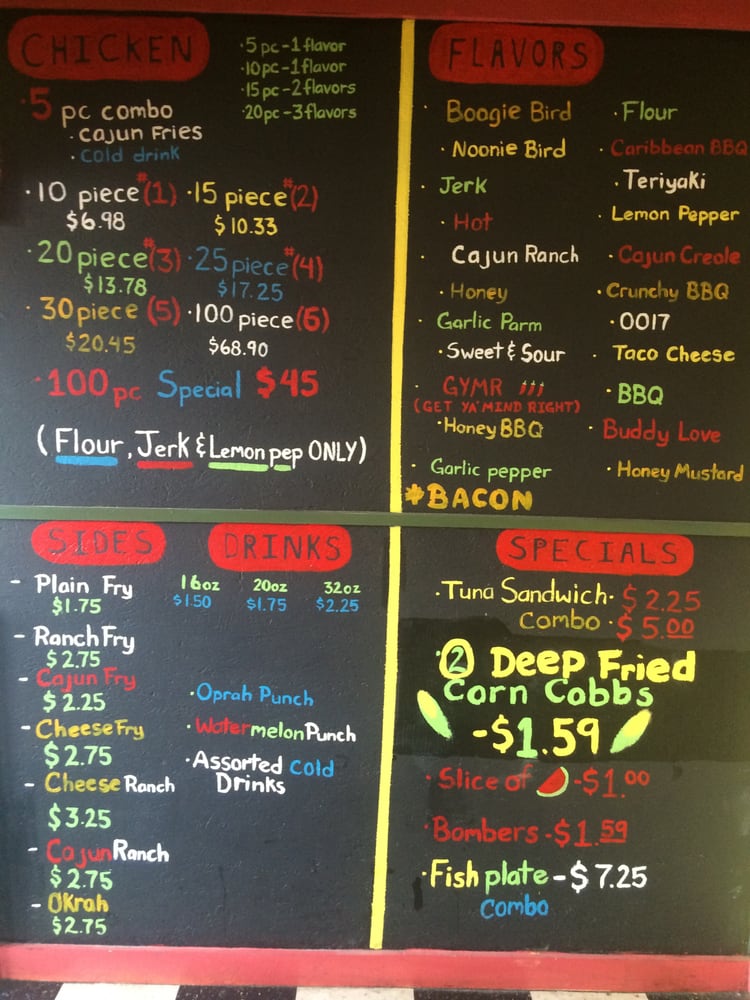 CHICKEN
·5 pc-1 flavor
·10 pc-1 flavor
·15 pc-2 flavors
·20 pc-3 flavors
·5 pc combo
·cajun Fries
·cold drink
·10 piece #(1) ·15 piece #(2)
$6.98 $10.33
·20 piece #(3) ·25 piece #(4)
$13.78 $17.25
·30 piece (5) ·100 piece (6)
$20.45 $68.90
·100 pc Special $45
(Flour, Jerk & Lemon pep ONLY)
FLAVORS
· Boogie Bird · Flour
· Noonie Bird · Caribbean BBQ
· Jerk · Teriyaki
· Hot · Lemon Pepper
· Cajun Ranch · Cajun Creole
· Honey · Crunchy BBQ
· Garlic Parm · 0017
· Sweet & Sour · Taco Cheese
· GYMR · BBQ
(GET YA' MIND RIGHT)
· Honey BBQ · Buddy Love
· Garlic pepper · Honey Mustard
*BACON
SIDES
- Plain Fry
$1.75
- Ranch Fry
$2.75
- Cajun Fry
$2.25
- Cheese Fry
$2.75
- Cheese Ranch
$3.25
- Cajun Ranch
$2.75
- Okrah
$2.75
DRINKS
16oz 20oz 32oz
$1.50 $1.75 $2.25
·Oprah Punch
·Watermelon Punch
·Assorted Cold
Drinks
SPECIALS
·Tuna Sandwich· $2.25
Combo · $5.00
·2 Deep Fried
Corn Cobbs
-$1.59
·Slice of -$1.00
·Bombers -$1.59
·Fish plate -$7.25
Combo